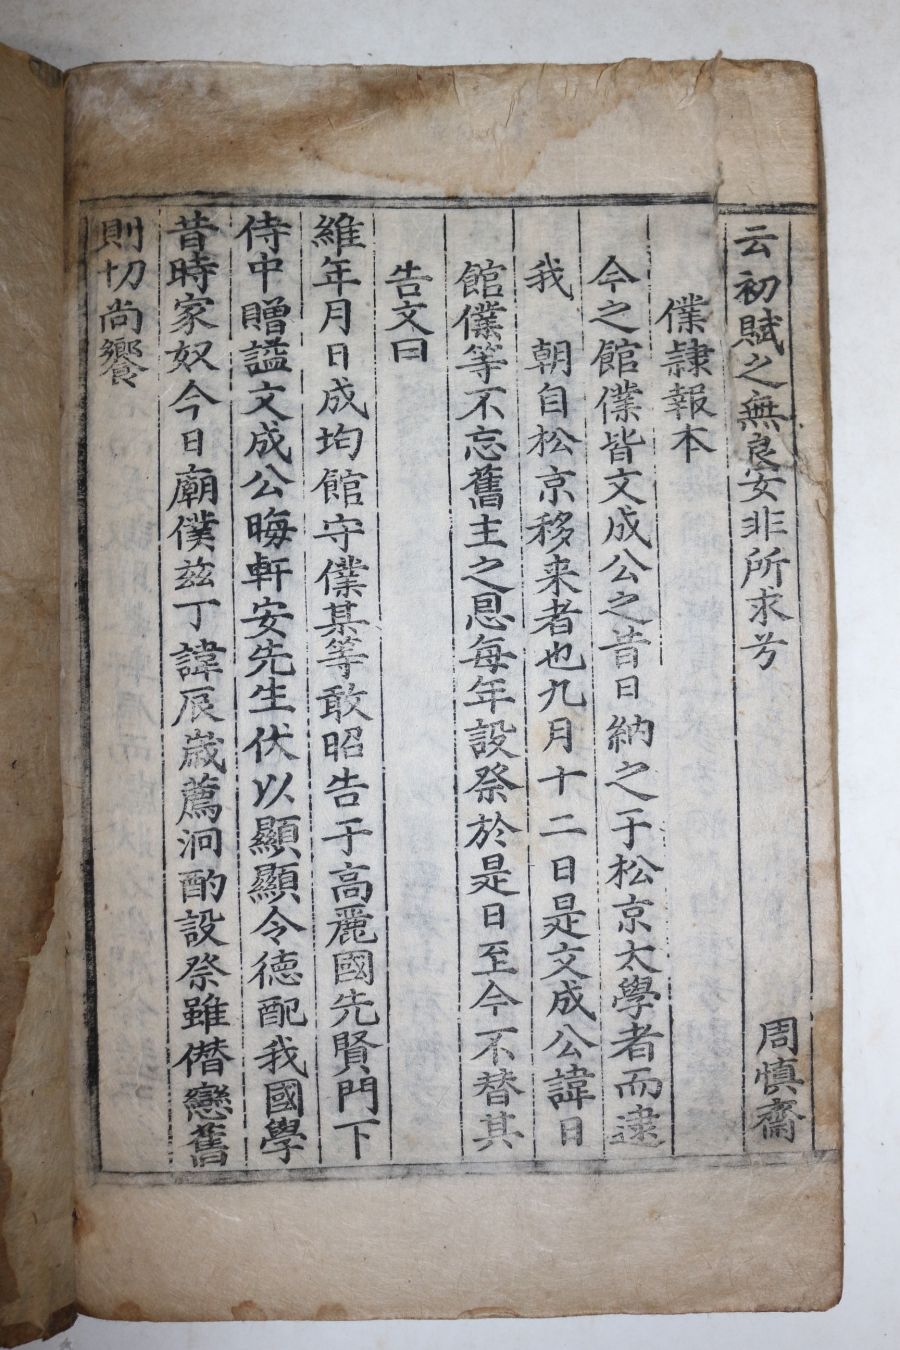 云初賦之無良安非所求兮 周慎齋
僕隷報本
今之館僕皆文成公之昔日納之于松京太學者而逮
我 朝自松京移来者也九月十二日是文成公諱日
館僕等不忘舊主之恩每年設祭於是日至今不替其
告文曰
維年月日成均館守僕某等敢昭告于高麗國先賢門下
侍中贈諡文成公晦軒安先生伏以顯顯令德配我國學
昔時家奴今日廟僕兹丁諱辰歲薦泂酌設祭雖僭戀舊
則切尚饗